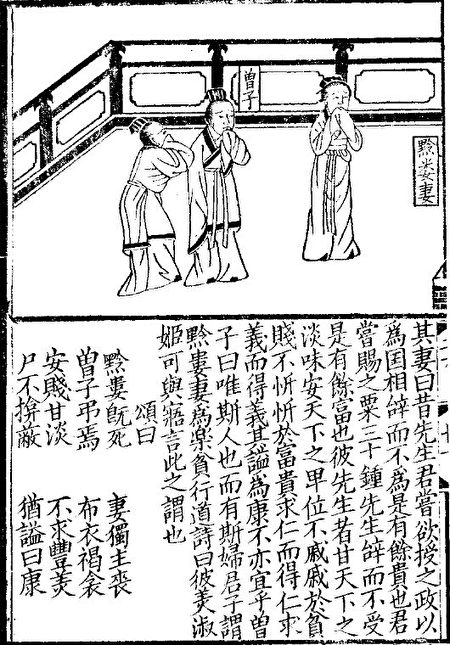 黔娄妻
曾子
其妻曰昔先生君嘗欲授之政以
為国相辭而不為是有餘貴也君
嘗賜之粟三十鍾先生辭而不受
是有餘富也彼先生者甘天下之
淡味安天下之卑位不戚戚於貧
賤不忻忻於富貴求仁而得仁求
義而得義其謚為康不亦宜乎曾
子曰唯斯人也而有斯婦君子謂
黔婁妻為樂貧行道詩曰彼美淑
姬可與寤言此之謂也
頌曰
黔婁既死 妻獨主喪
曾子弔焉 布衣褐衾
安賤甘淡 不求豐美
尸不揜蔽 猶謚曰康